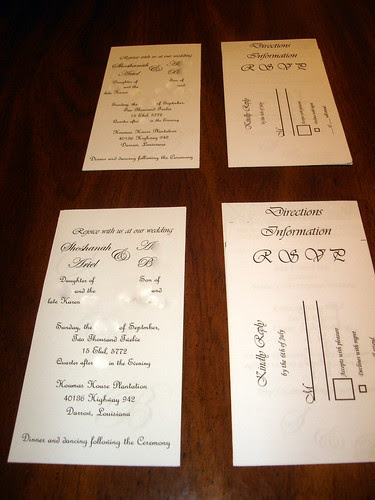 Rejoice with us at our wedding
Shoshanah & Al
Ariel B
Daughter of Son of
and the and the
late Karen
Sunday, the of September,
Two Thousand Twelve
15 Elul, 5772
Quarter after in the Evening
Houmas House Plantation
40136 Highway 942
Darrow, Louisiana
Dinner and dancing following the Ceremony
Directions
Information
R S V P
Kindly Reply
by the 6th of July
M
Accepts with pleasure
Declines with regret
Rejoice with us at our wedding
Shoshanah & A
Ariel B
Daughter of Son of
and the and the
late Karen
Sunday, the of September,
Two Thousand Twelve
15 Elul, 5772
Quarter after in the Evening
Houmas House Plantation
40136 Highway 942
Darrow, Louisiana
Dinner and dancing following the Ceremony
Directions
Information
R S V P
Kindly Reply
by the 6th of July
M
Accepts with pleasure
Declines with regret